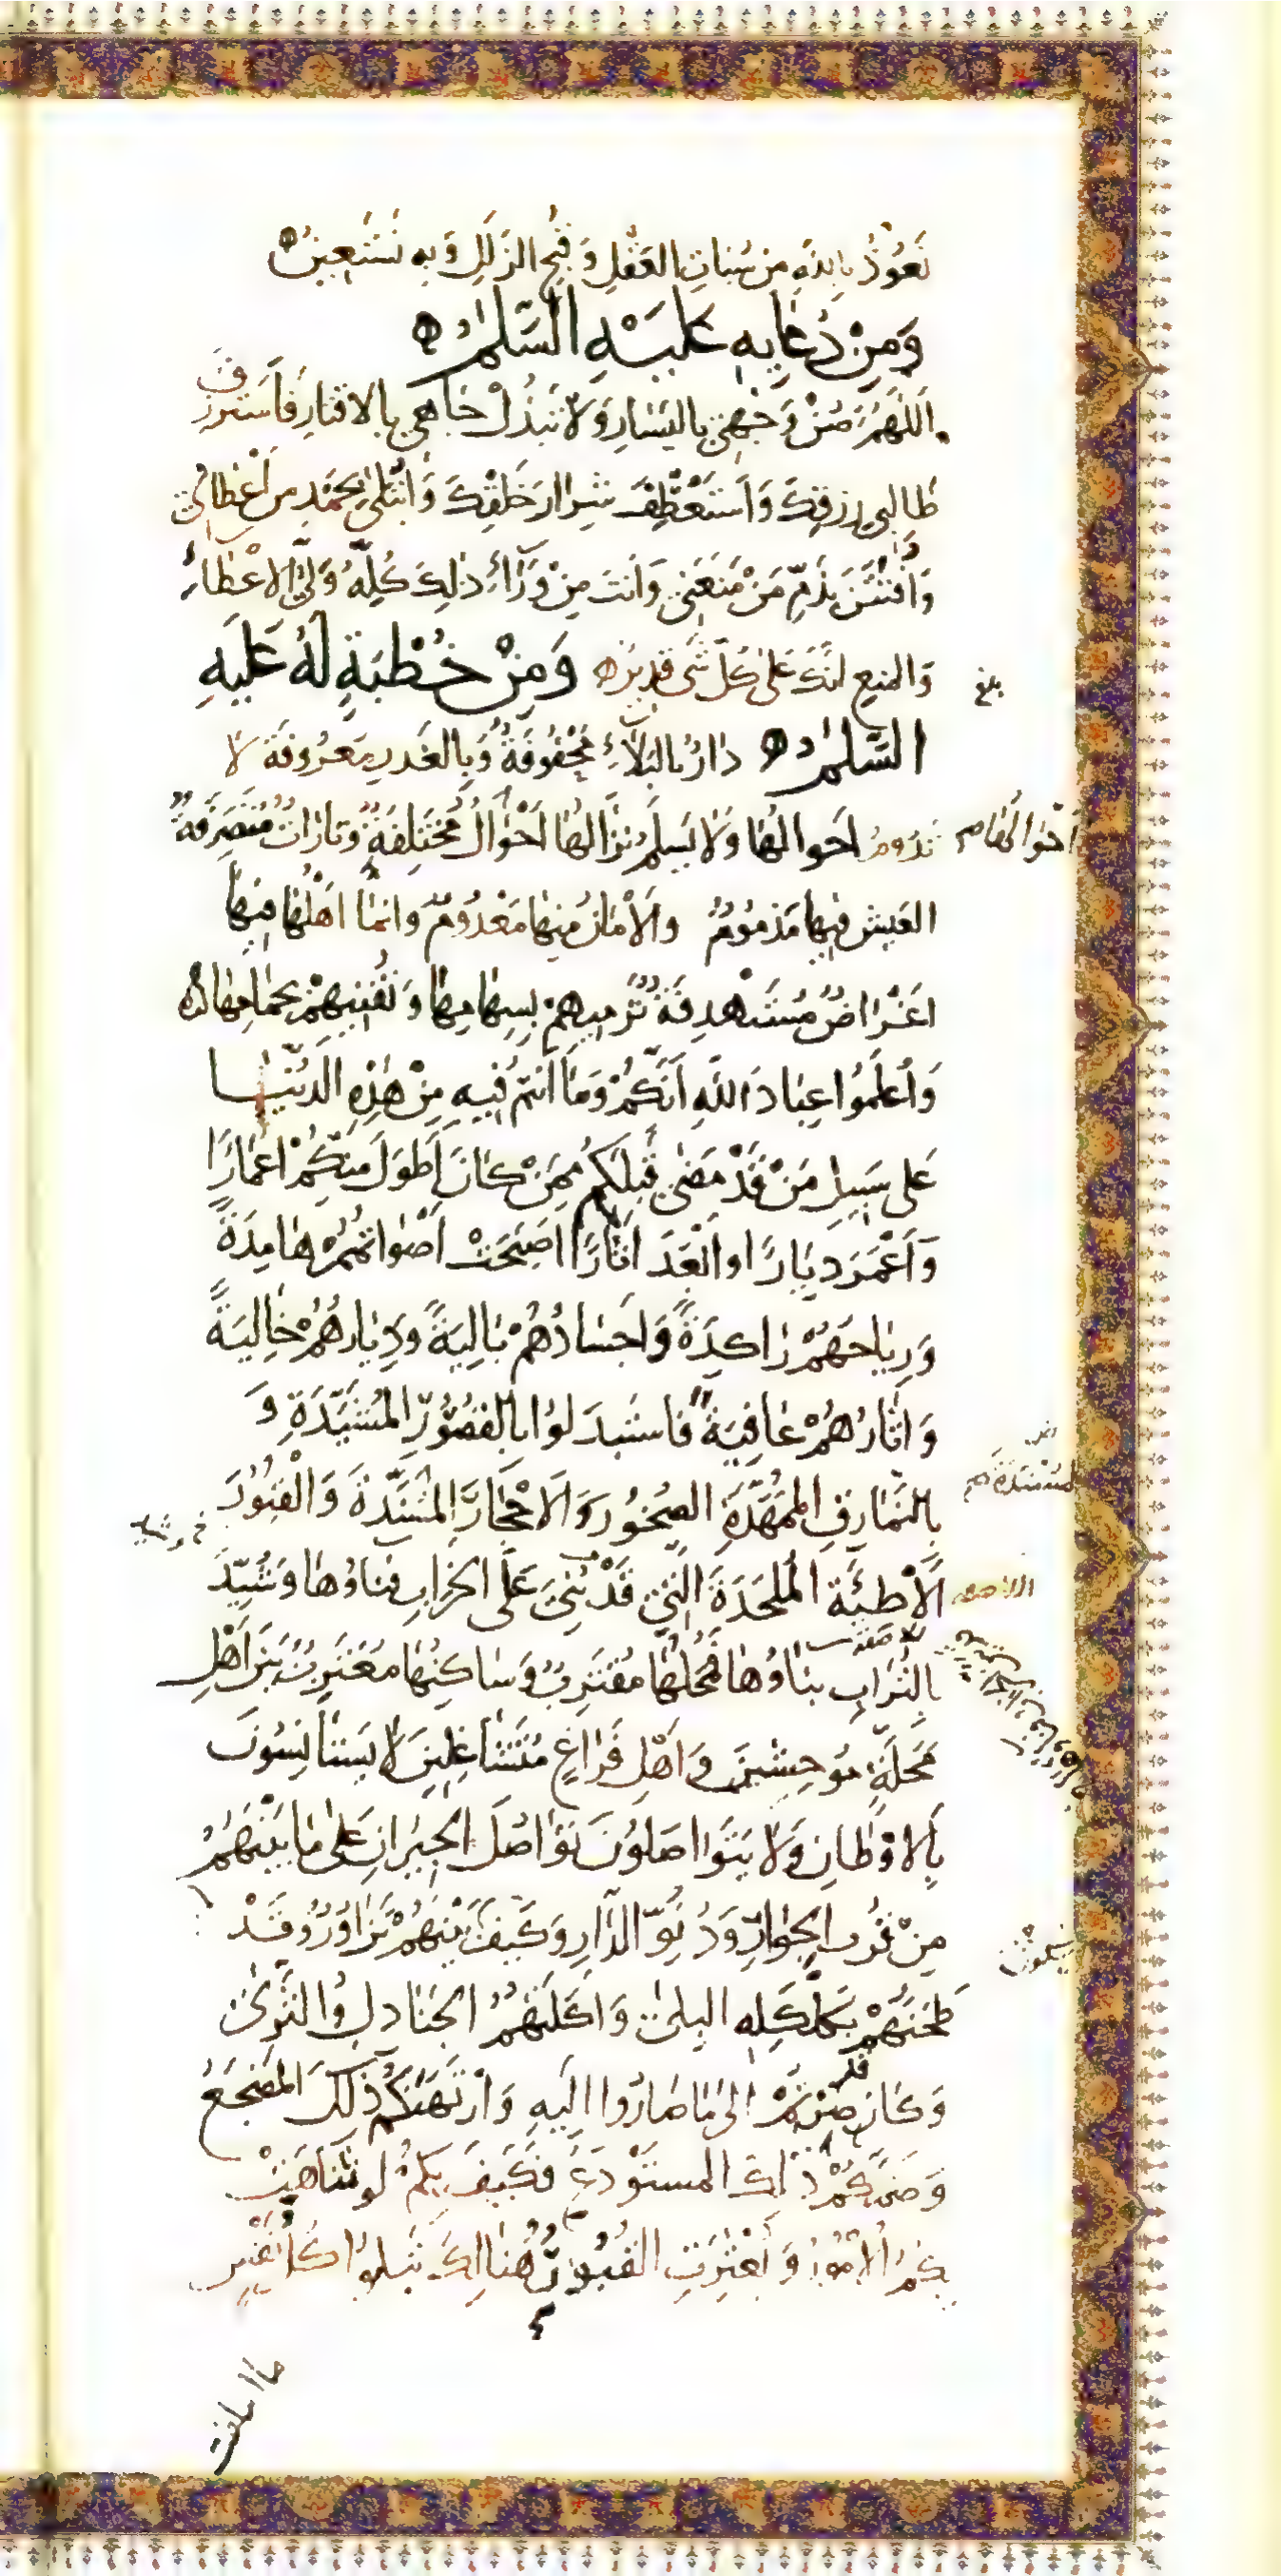 نَعُوْذُ بِاللّٰهِ مِنْ سُبَاتِ العَقْلِ وَ قُبْحِ الزَّلَلِ وَ بِهِ نَسْتَعِيْنُ
وَمِنْ دُعَايِهِ عَلَيْهِ السَّلٰمُ
اَللّٰهُمَّ صُنْ وَجْهِيْ بِاليَسَارِ وَلَا تَبْذُلْ جَاهِي بِالاقْتَارِ فَاَسْتَرْزِقَ
طَالِبِي رِزْقِكَ وَ اَسْتَعْطِفَ شِرَارَ خَلْقِكَ وَ ابْتَلٰى بِحَمْدِ مَنْ اَعْطَانِيْ
وَ اُفْتَتَنَ بِذَمِّ مَنْ مَنَعَنِي وَ اَنْتَ مِنْ وَرَآءِ ذٰلِكَ كُلِّهِ وَلِيُّ الاِعْطَاءِ
وَ المنعِ اِنَّكَ عَلٰى كُلِّ شَىْءٍ قَدِيْرٌ وَمِنْ خُطْبَةٍ لَهُ عَلَيْهِ
بلغ
السَّلٰمُ دَارٌ بِالبَلَآءِ مَحْفُوفَةٌ وَ بِالغَدرِ مَعْرُوفَة لَا
تَدُوْمُ اَحوَالُهَا وَلَا يَسْلَمُ نُزَّالُهَا اَحْوَالٌ مُخْتَلِفَةٌ وَ تَارَاتٌ مُتَصَرِّفَةٌ
العَيش فِيهَا مَذمُومٌ وَ الاَمَانُ مِنهَا مَعْدُومٌ وَ انَّمَا اَهْلُهَا فِيْهَا
اَغْرَاضٌ مُسْتَهْدِفَةٌ تَرْمِيهِمْ بِسِهَامِهَا وَ تُفْنِيهِمْ بِحِمَامِهَا
وَ اعْلَمُوا عِبَادَ اللّٰهِ اَنَّكُمْ وَ مَا اَنتُم فِيهِ مِنْ هٰذِهِ الدُّنْيَا
عَلٰى سَبِيلِ مَنْ قَدْ مَضٰى قَبْلَكُم مِمَّنْ كَانَ اَطْوَلَ مِنْكُمْ اَعْمَارًا
وَ اَعْمَرَ دِيَارًا وَ اَبْعَدَ اٰثَارًا اَصْبَحَتْ اَصْوَاتُهُمْ هَامِدَةً
وَ رِيَاحُهُمْ رَاكِدَةً وَ اَجْسَادُهُمْ بَالِيَةً وَ دِيَارُهُمْ خَالِيَةً
وَ اٰثَارُهُمْ عَافِيَةً فَاسْتَبدَلُوا بِالقُصُوْرِ المُشَيَّدَةِ وَ
بِالنَّمَارِقِ المُمَهَّدَةِ الصُّخُورَ وَ الاَحْجَارَ المُسَنَّدَةَ وَ الْقُبُوْرَ
الاَّطِئَةَ المُلحَدَةَ الَّتِي قَدْ بُنِيَ عَلَى الخَرَابِ فِنَاؤُهَا وَ شُيِّدَ
بِالتُّرَابِ بِنَاؤُهَا فَمَحَلُّهَا مُقْتَرِبٌ وَ سَاكِنُهَا مُغْتَرِبٌ بَيْنَ اَهْلِ
مَحَلَّةٍ مُوحِشِينَ وَ اَهْلِ فَرَاغٍ مُتَشَاغِلِينَ لَا يَسْتَأنِسُونَ
بِالاَوْطَانِ وَ لَا يَتَوَاصَلُونَ تَوَاصُلَ الجِيرَانِ عَلٰى مَا بَيْنَهُمْ
مِنْ قُربِ الجِوَارِ وَ دُنُوِّ الدَّارِ وَ كَيْفَ يَكُونُ بَيْنَهُمْ تَزَاوُرٌ وَ قَدْ
طَحَنَهُمْ بِكَلْكَلِهِ البِلٰى وَ اَكَلَتْهُمُ الجَنَادِلُ وَ الثَّرٰى
وَ كَأن قد صِرْتُمْ اِلٰى مَا صَارُوا اِلَيهِ وَ ارْتَهَنَكُمْ ذٰلِكَ المَضْجَعُ
وَ ضَمَّكُمْ ذٰلِكَ المستَوْدَعُ فَكَيْفَ بِكُمْ لَو تَنَاهَتْ
بِكُمُ الاُمُوْرُ وَ بُعْثِرَتِ القُبُوْرُ هُنَالِكَ تَبلُو كُلُّ نَفْسٍ
ما اسلفت